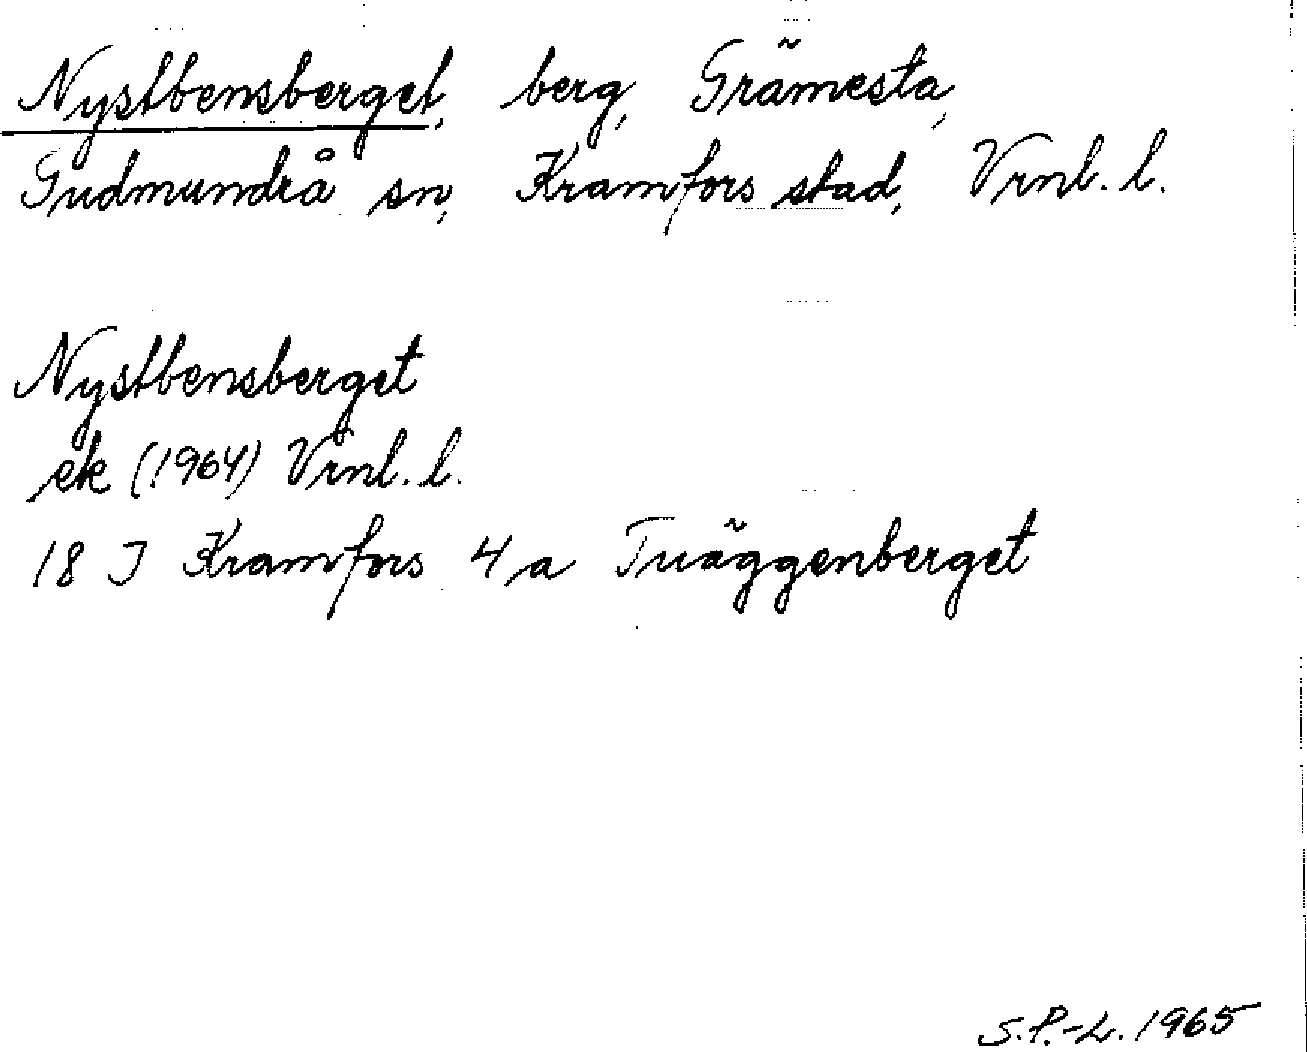 Nystbensberget, berg, Grämesta,
Gudmundrå sn, Kramfors stad, Vrnl. l.
Nystbensberget
ek (1964) Vrnl. l.
18 J Kramfors 4 a Tväggenberget
S.P.-L. 1965